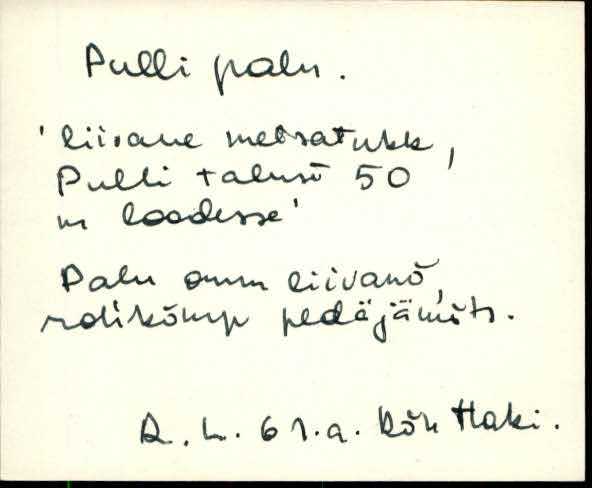 Pulli palu.
'liivane metsatukk,
Pulli talust 50
m loodesse'
Palu omm liivanõ,
pedäjämõts.
R. L. 61.a. Kõk Haki.